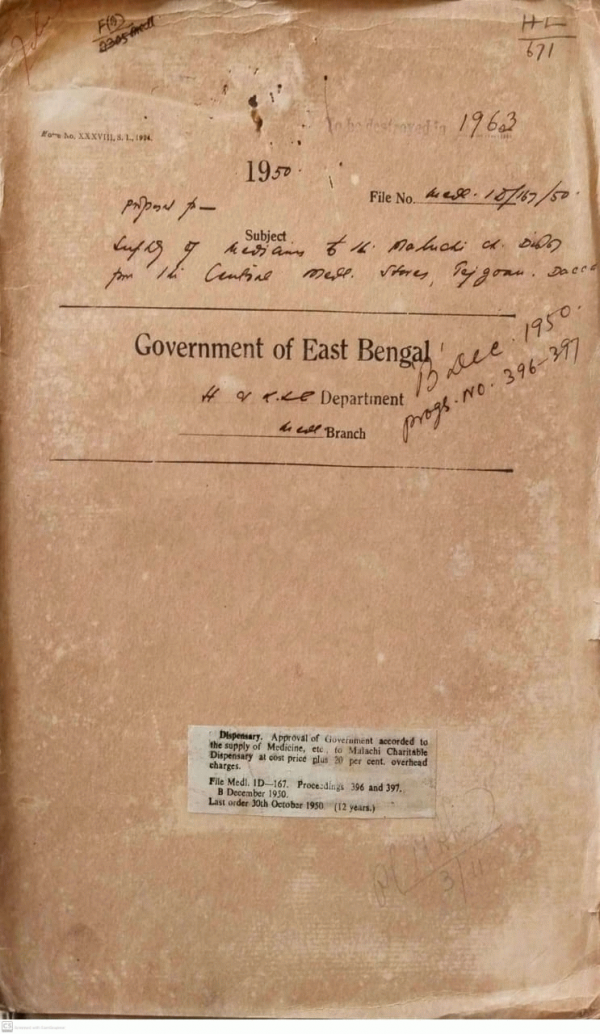 H L
671
Form No. XXXVIII, S. I., 1924.
To be destroyed in 1963
1950.
File No. Medl. 1D/167/50.
Proposal for
Subject
Supply of medicines to the Maluchi ch. Disp
from the Central Medl. Stores, Tejgaon. Dacca
Government of East Bengal
H & Department
Medl Branch
B Dec. 1950.
Progs. No. 396-397
Dispensary. Approval of Government accorded to
the supply of Medicine, etc., to Malachi Charitable
Dispensary at cost price plus 20 per cent. overhead
charges.
File Medl. 1D—167. Proceedings 396 and 397.
B December 1950.
Last order 30th October 1950. (12 years.)
3/11
CS